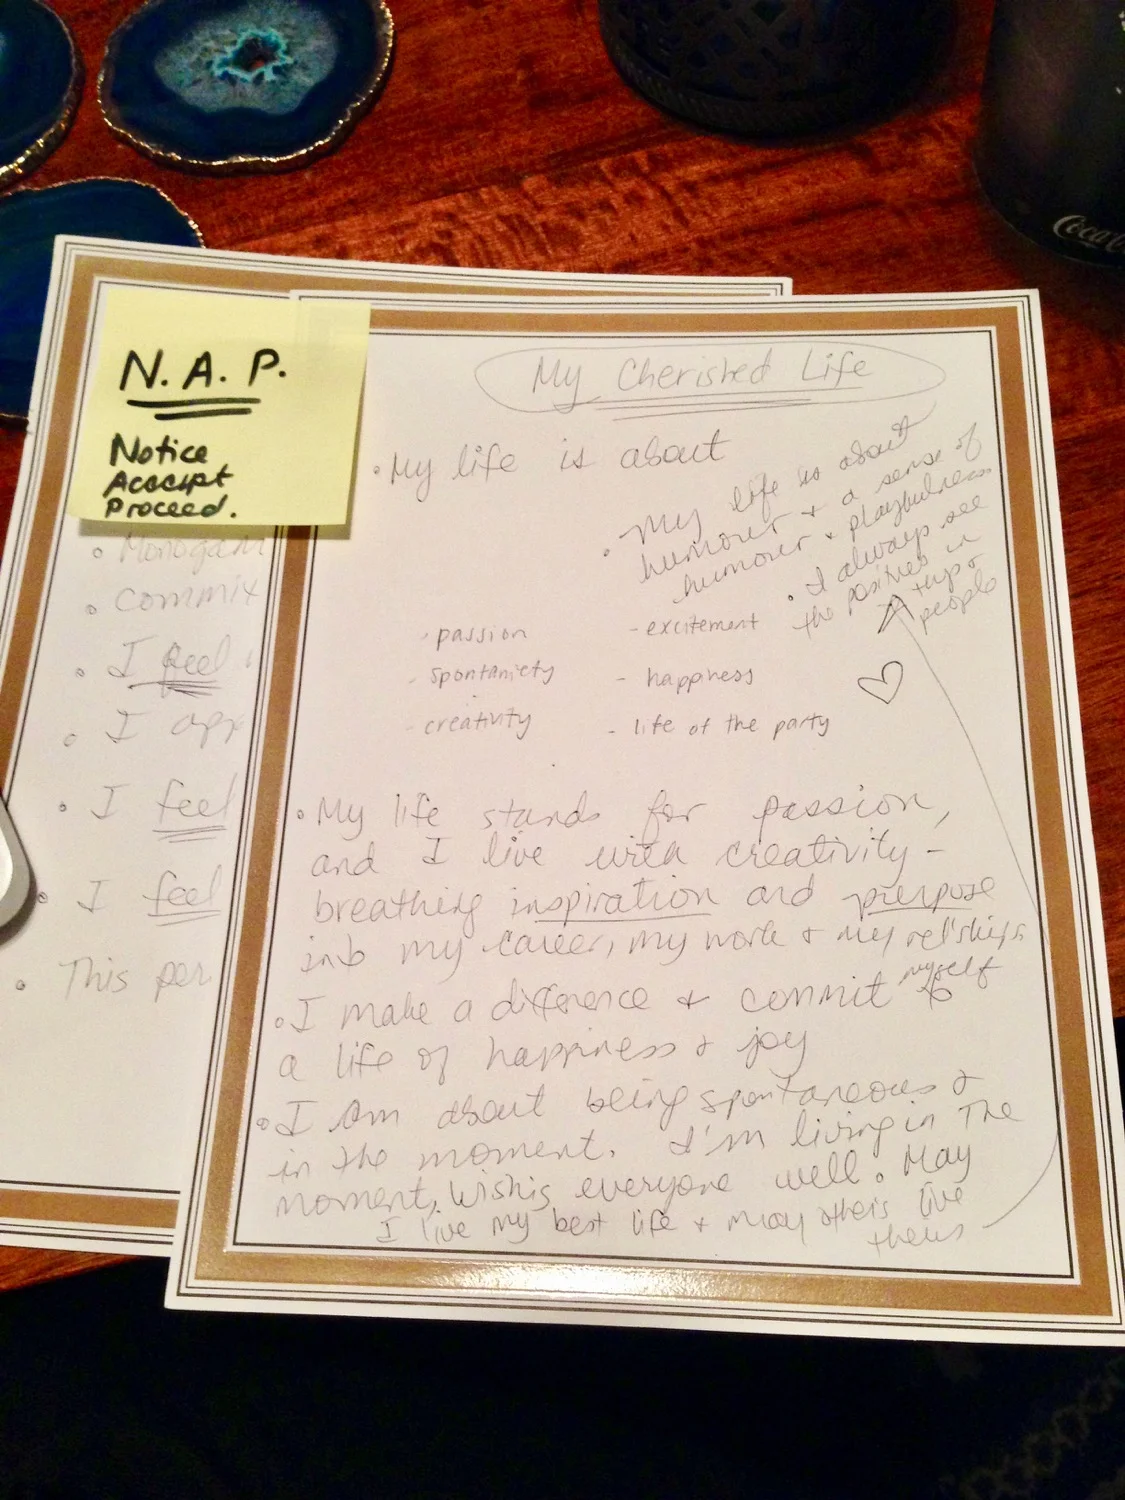 N.A.P.
Notice
Acecept
Proceed.
Monogam
commit
I feel
I app
I feel
I feel
This per
My Cherished Life
My life is about
My life is about
humour + a sense of
humour + playfulness
I always see
the positives in
people
- passion
- spontaniety
- creativity
- excitement
- happiness
- life of the party
My life stands for passion,
and I live with creativity -
breathing inspiration and purpose
into my career, my work + my rel'ships
I make a difference + commit myself to
a life of happiness + joy
I am about being spontaneous +
in the moment. I'm living in The
moment, wishing everyone well. May
I live my best life + may others live
theirs
Coca